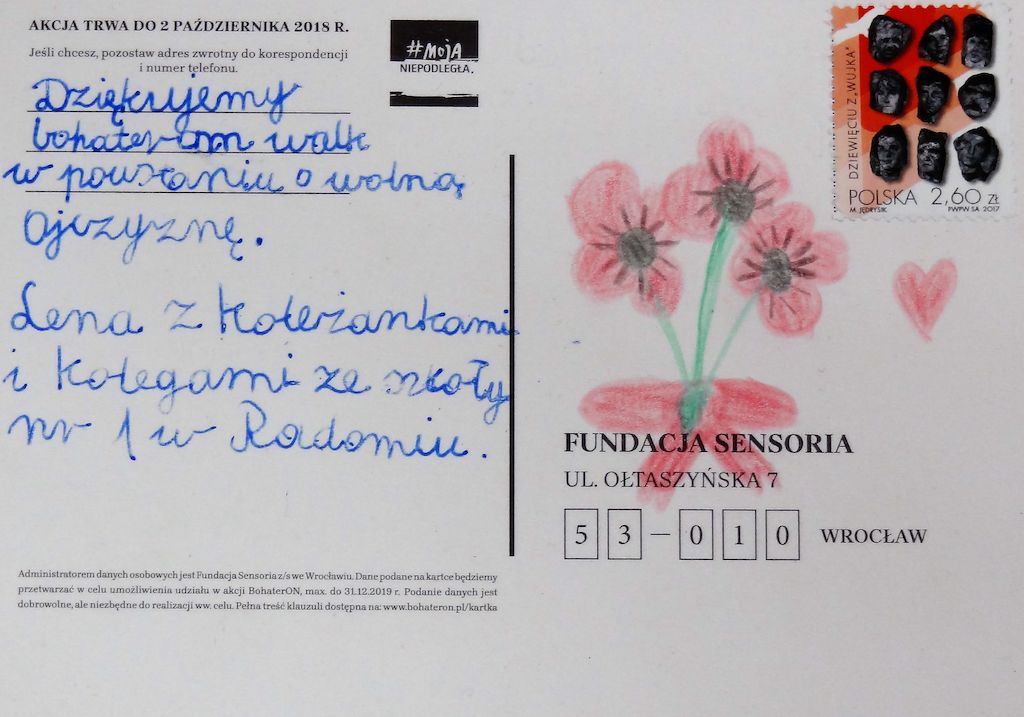 AKCJA TRWA DO 2 PAŹDZIERNIKA 2018 R.
Jeśli chcesz, pozostaw adres zwrotny do korespondencji
i numer telefonu.
#MOJA
NIEPODLEGŁA.
Dziękujemy
bohaterom walk
w powstaniu o wolną
Ojczyznę.
Lena z koleżankami
i kolegami ze szkoły
nr 1 w Radomiu.
Administratorem danych osobowych jest Fundacja Sensoria z/s we Wrocławiu. Dane podane na kartce będziemy
przetwarzać w celu umożliwienia udziału w akcji BohaterON, max. do 31.12.2019 r. Podanie danych jest
dobrowolne, ale niezbędne do realizacji ww. celu. Pełna treść klauzuli dostępna na: www.bohateron.pl/kartka
DZIEWIĘCIU Z „WUJKA”
POLSKA 2,60 zł
M. JĘDRYSIK PWPW SA 2017
FUNDACJA SENSORIA
UL. OŁTASZYŃSKA 7
53—010 WROCŁAW